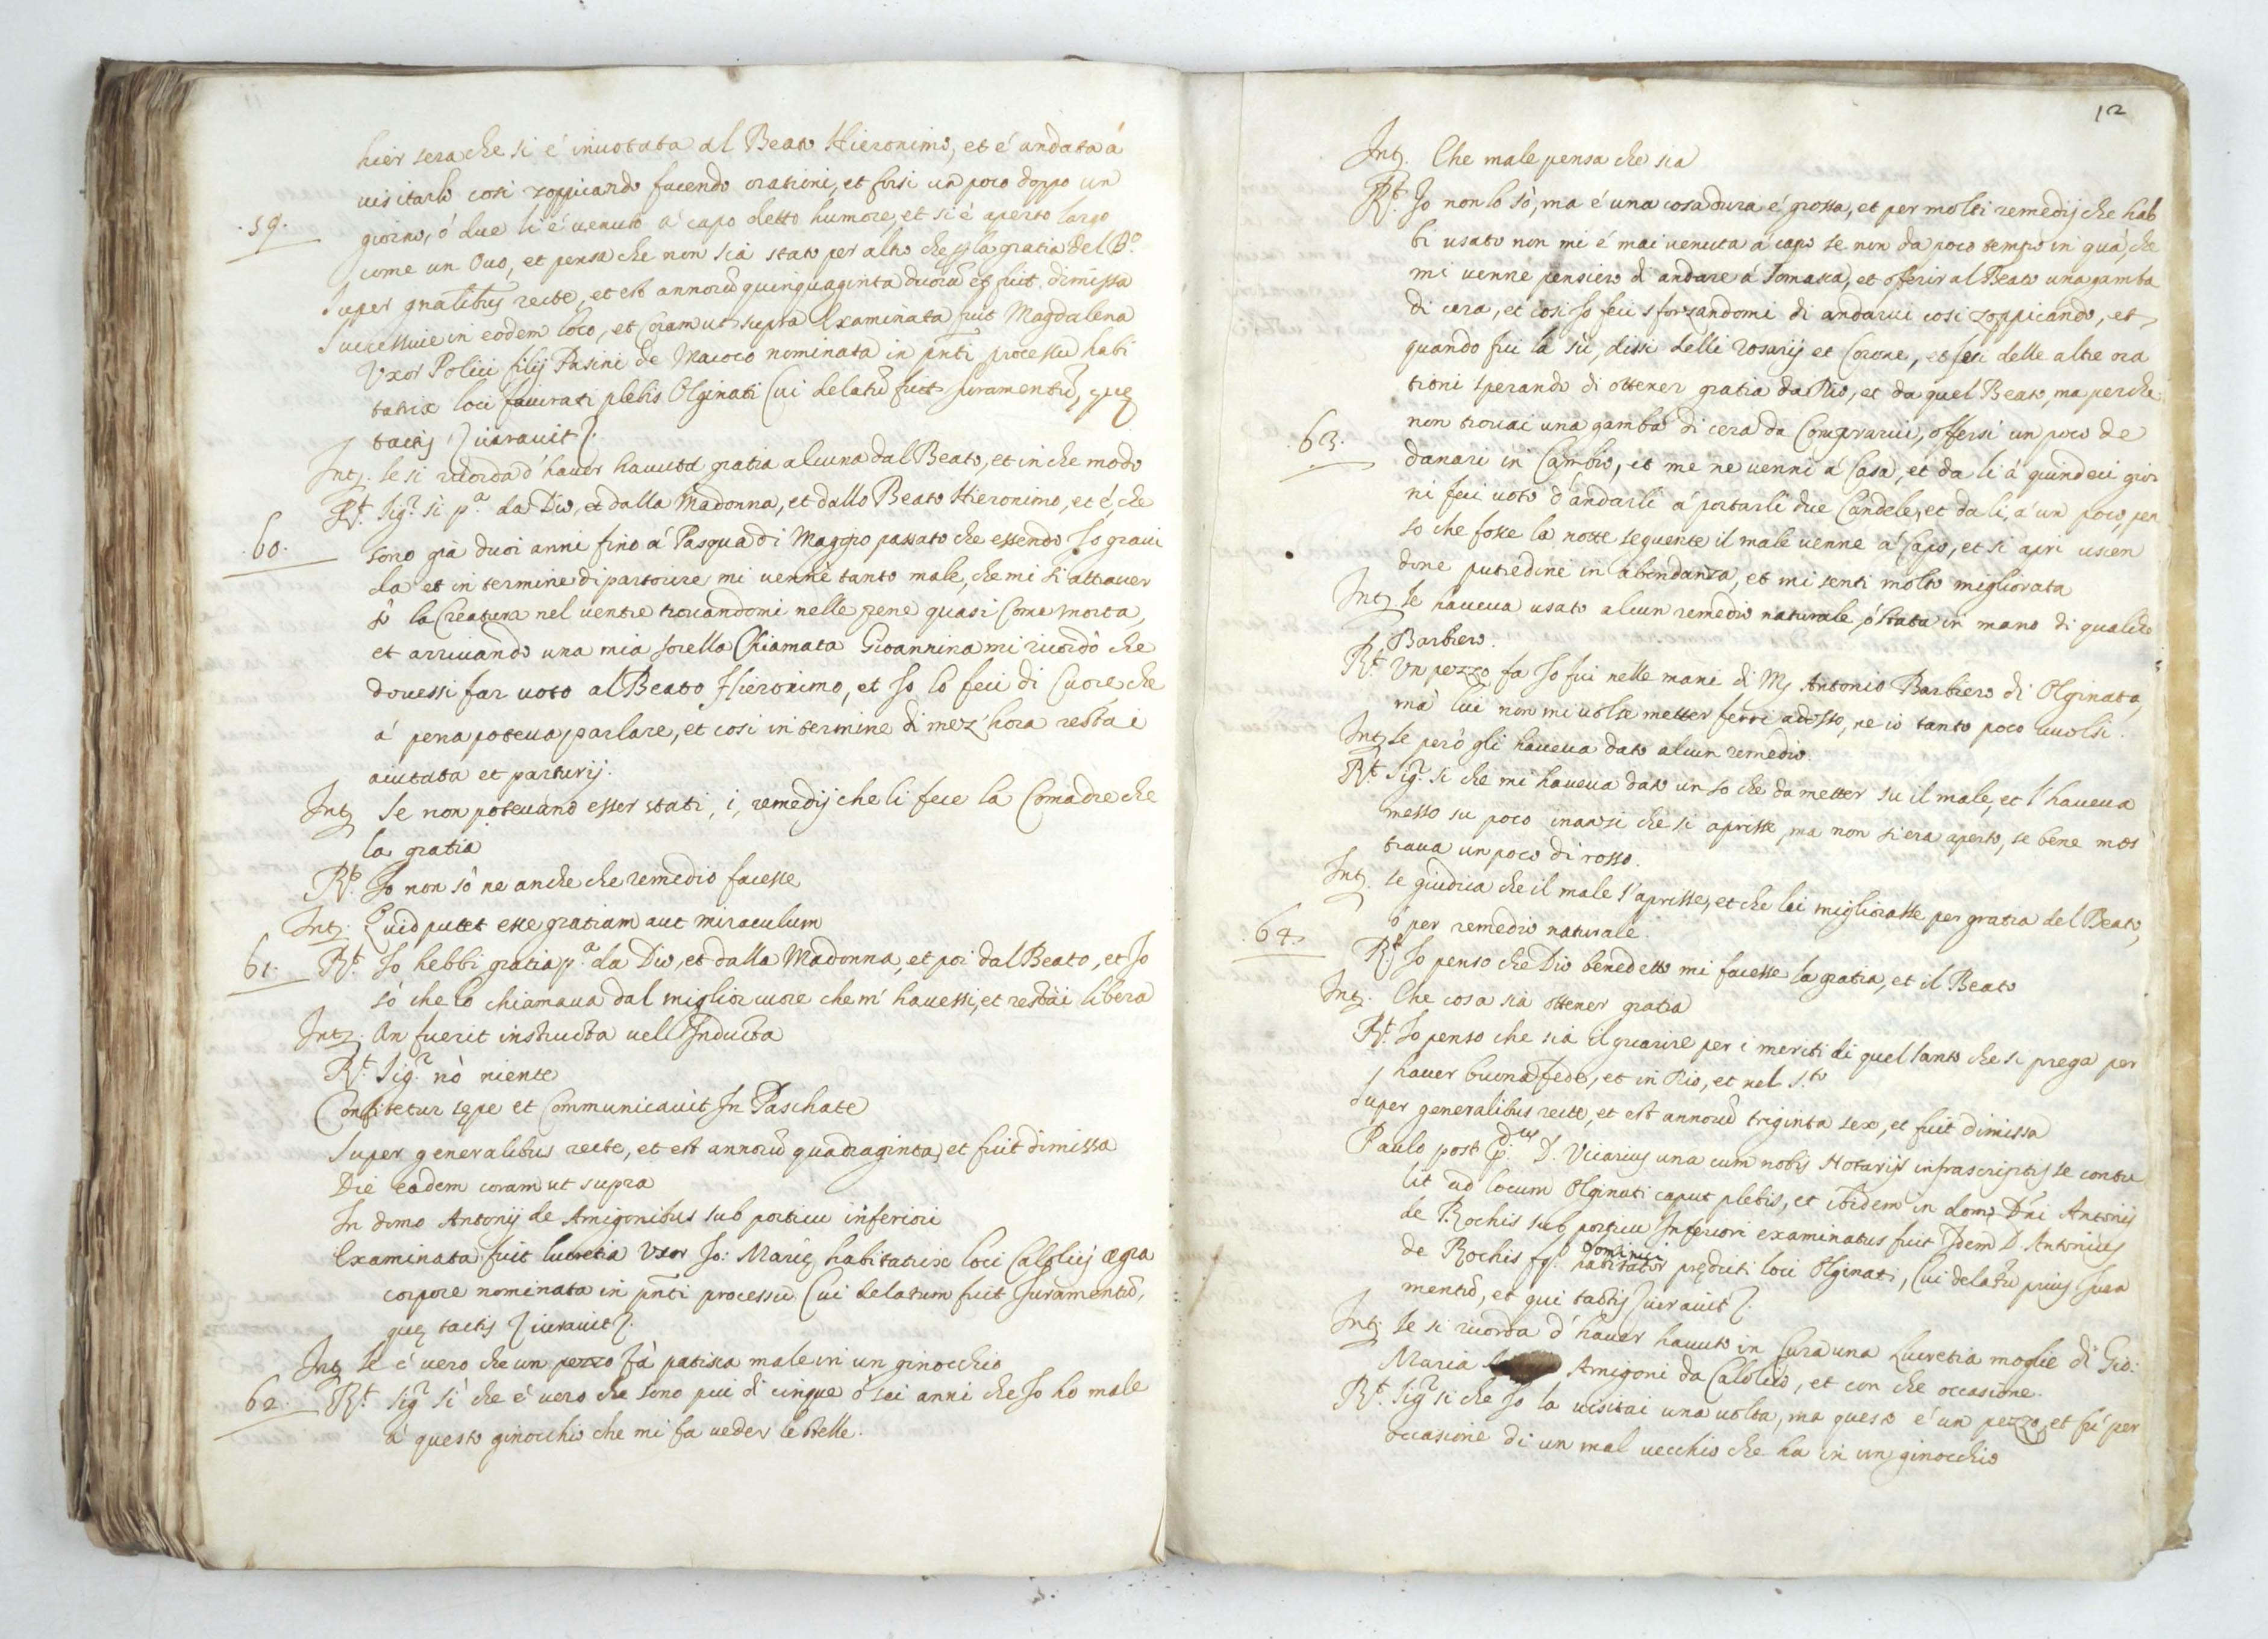 hier sera che si é inuotata al Beato Hieronimo, et é andata á
uisitarlo cosi zoppicando facendo orationi, et forsi un poco doppo un
.59. giorno, ó due li é venuto á capo detto humore, et si é aperto largo
come un Ouo, et pensa che non sia stato per altro che p la gratia del B.º
Super gnalibus recte, et est annorũ quinquaginta duorũ et fuit dimissa
Successiue in eodem loco, et Coram ut supra Examinata fuit Magdalena
Vxor Polici filij Pasini de Maioco nominata in pnti processu habi
tatrix loci plebis Olginati Cui delatũ fuit Juramentũ, quę
tactis iurauit
Intz. se si ricorda d'hauer hauuta gratia alcuna dal Beato, et in che modo
.60. Rt. Sigr. si pa. da Dio, et dalla Madonna, et dallo Beato Hieronimo, et é, che
sono giá duoi anni fino á Pasqua di Maggio passato che essendo Io graui
da et in termine di partorire mi uenne tanto male, che mi si attrauer
só la Creatura nel uentre trouandomi nelle pene quasi Come morta,
et arriuando una mia sorella Chiamata Gioannina mi ricordó che
douessi far uoto al Beato Hieronimo, et Io lo feci di Cuore che
á pena poteua parlare, et cosi in termine di mez'hora restai
aiutata et parturij.
Intz Se non poteuano esser stati, i, remedij che li fece la Comadre che
la gratia
Rt. Io non só ne anche che remedio facesse
Intz. Quid putet esse gratiam aut miraculum
61. Rt. Io hebbi gratia pa. da Dio, et dalla Madonna, et poi dal Beato, et Io
só che lo chiamaua dal miglior cuore che m'hauessi, et restai libera
Intz. An fuerit instructa uel Inducta
Rt. Sigr. nó niente
Confitetur sępe et Communicauit In Paschate
Super generalibus recte, et est annorũ quadraginta, et fuit dimissa
Die eadem coram ut supra
In domo Antonij de Amigonibus sub porticu inferiori
Examinata fuit lucretia Vxor Jo: Marię habitatrix loci Calolcij ægra
corpore nominata in pnti processu Cui delatum fuit Juramentũ,
quę tactis iurauit
Intz Se é uero che un pezzo fá patisca male in un ginocchio
62. Rt. Sigr. si che é uero che sono piu di cinque ó sei anni che Io ho male
á questo ginocchio che mi fa ueder le stelle.
12
Intz. Che male pensa che sia
Rt. Io non lo só, ma é una cosa dura é grossa, et per molti remedij che hab
bi usato non mi é mai uenuta á capo se non da poco tempo in quá, che
mi uenne pensiero di andare á Somasca, et offerir al Beato una gamba
di cera, et cosi Io feci sforzandomi di andarui cosi zoppicando, et
quando fui lá sú, dissi delli Rosarij et Corone, et feci delle altre ora
tioni sperando di ottener gratia da Dio, et da quel Beato, ma perche
.63. non trouai una gamba di cera da Comprarui, offersi un poco de
danari in Cambio, et me ne uenni á Casa, et da li á quindeci gior
ni feci uoto d'andarli á portarli due Candele, et da li, á un poco, pen
so che fosse la notte seguente il male uenne á Capo, et si aprì uscen
done putredine in abondanza, et mi senti molto migliorata
Intz se haueua usato alcun remedio naturale, ó stata in mano di qualche
Barbiero.
Rt. Vn pezzo fa Io fui nelle mani di Mr Antonio Barbiero di Olginato,
má lui non mi uolse metter ferri adosso, ne io tanto poco uuolsi.
Intz se peró gli haueua dato alcun remedio.
Rt. Sigr. si che mi haueua dato un so che da metter su il male, et l'haueua
messo su poco inanzi che si aprisse, ma non si era aperto, se bene mos
traua un poco di rosso.
Intz. se giudica che il male s'aprisse, et che lei migliorasse per gratia del Beato,
ó per remedio naturale.
.64. Rt. Io penso che Dio benedetto mi facesse la gratia, et il Beato
Intz. Che cosa sia ottener gratia
Rt. Io penso che sia il guarire per i meriti di quel Santo che si prega per
hauer buona fede, et in Dio, et nel S.to
Super generalibus recte, et est annorũ triginta sex, et fuit dimissa
Paulo post D. Vicarius una cum nobis Notarijs infrascriptis se contu
lit ad locum Olginati caput plebis, et ibidem in domo Dni Antonij
de Rochis sub porticu Inferiori examinatus fuit Idem D. Antonius
de Rochis fq. Dominici habitator prędicti loci Olginati, Cui delatũ prius Jura
mentũ, et qui tactis iurauit
Intz se si ricorda d'hauer hauuto in Cura una Lucretia moglie di Gio:
Maria Amigoni da Calolcio, et con che occasione.
Rt. Sigr. si che Io la uisitai una uolta, ma questo é un pezzo, et fú per
occasione di un mal uecchio che ha in un ginocchio